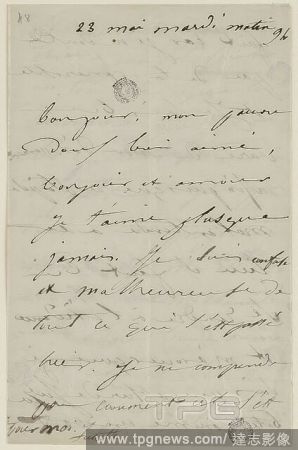 88
23 mai mardi matin 9h
Bonjour, mon pauvre
doux bien aimé,
bonjour et amour
je t'aime plus que
jamais. Je suis confuse
et malheureuse de
tout ce qui s'est passé
hier. Je ne comprends
pas comment cela s'est
TPG
www.tpgnews.com/達志影像